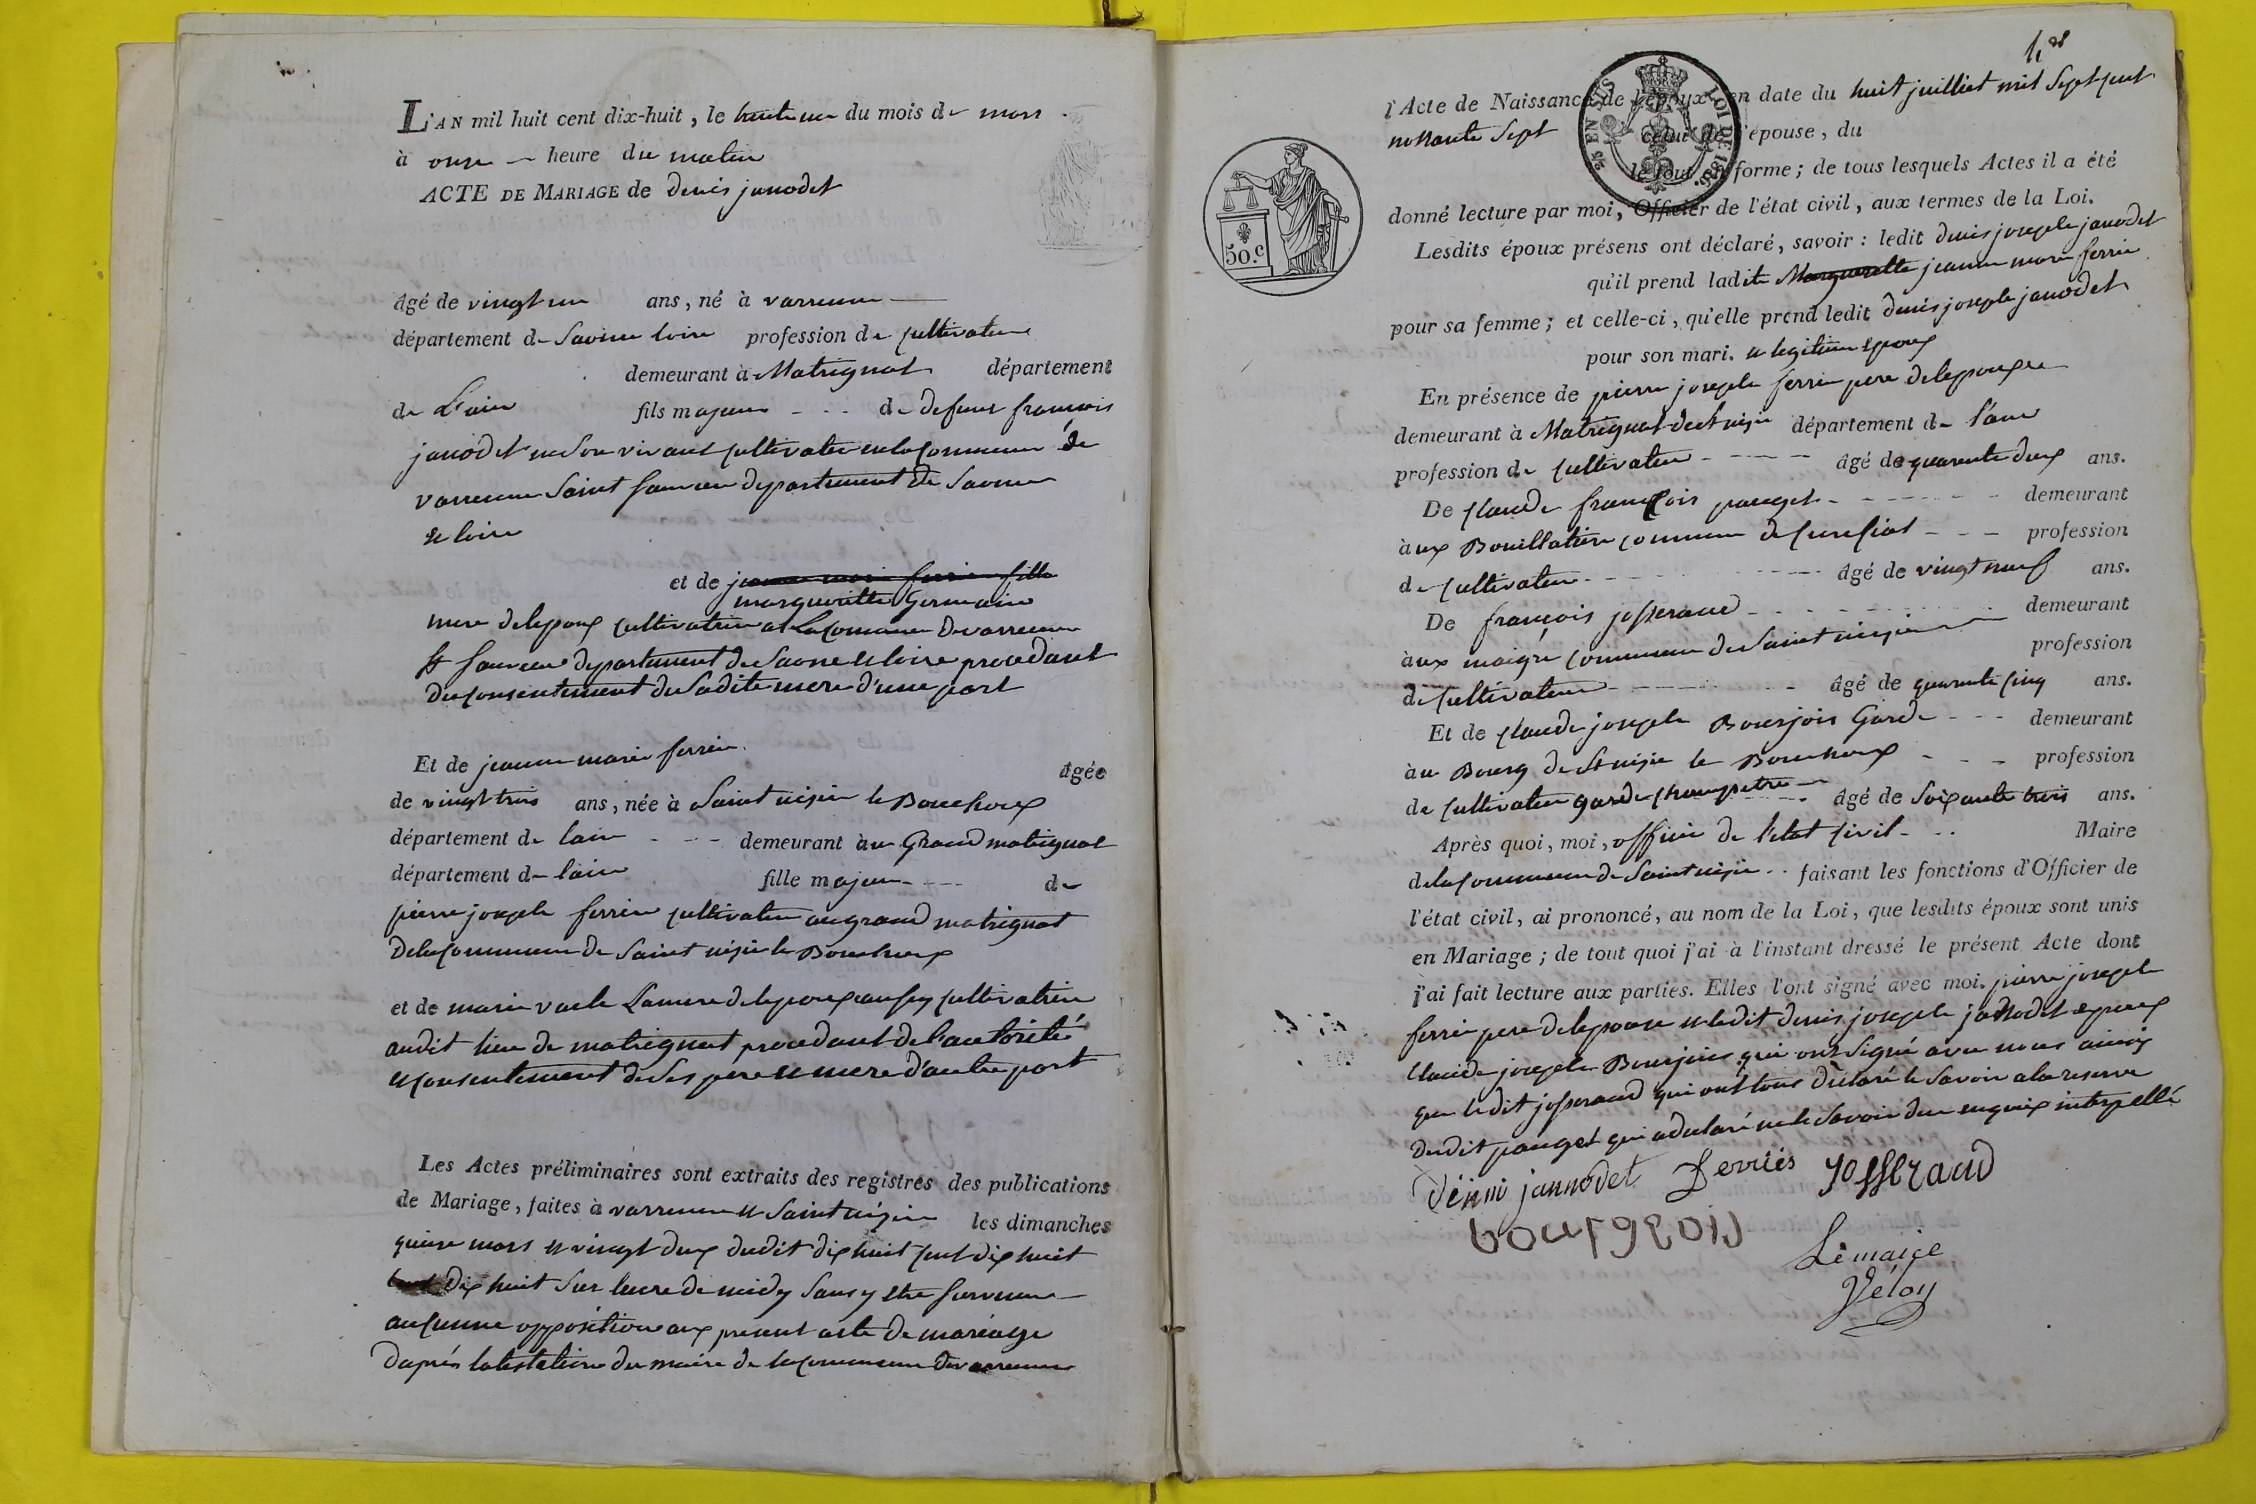 L'AN mil huit cent dix-huit, le trente un du mois de mars
à onze heure du matin
ACTE DE MARIAGE de denis janodet
âgé de vingt un ans, né à varenne
département de Saone loire profession de cultivateur
demeurant à Matrignat département
de L'ain fils majeur de defunt francois
janodet en son vivant cultivateur en la commune de
varenne Saint Sauveur departement de Saone
et loire
et de jeanne marie ferrier fille
margueritte Germain
mere de lepoux cultivatrice a la comune de varenne
St Sauveur departement de Saone et loire procedant
du consentement de sadite mere d'une part
Et de jeanne marie ferrier âgée
de vingt trois ans, née à Saint nizier le Bouchoux
département de lain demeurant au Grand matrignat
département de lain fille majeure de
pierre joseph ferrier cultivateur au grand matrignat
de la commune de Saint nizier le Bouchoux
et de marie vacle La mere de lepouse aussy cultivatrice
audit lieu de matrignat procedant de l'autorité
et consentement de ses pere et mere d'autre part
Les Actes préliminaires sont extraits des registres des publications
de Mariage, faites à varenne et Saint nizier les dimanches
quinze mars et vingt deux dudit dix huit cent dix huit
dix huit sur leure de midy sans y etre survenu
aucunne opposition aux present acte de mariage
daprés latestation du maire de la commune de varenne
4
l'Acte de Naissance de l'époux, en date du huit juilliet mil sept cent
nonante sept celui de l'épouse, du
le tout en forme; de tous lesquels Actes il a été
donné lecture par moi, Officier de l'état civil, aux termes de la Loi.
25 EN SUS LOI DE 1816.
50.c
Lesdits époux présens ont déclaré, savoir : ledit denis joseph janodet
qu'il prend ladite Marguerette jeanne marie ferrier
pour sa femme; et celle-ci, qu'elle prend ledit denis joseph janodet
pour son mari. et legitime epoux
En présence de pierre joseph ferrier pere de lepouse
demeurant à Matrignat de St nizier département de l'ain
profession de cultivateur âgé de quarente deux ans.
De claude françois pauget demeurant
aux Bouillatiere commune de curciat profession
de cultivateur âgé de vingt neuf ans.
De françois josserand demeurant
aux maigre commune de Saint nizier profession
de cultivateur âgé de quarente cinq ans.
Et de claude joseph Bourjois Garde demeurant
au Bourg de St nizier le Bouchoux profession
de cultivateur garde champetre âgé de soixante trois ans.
Après quoi, moi, officier de l'etat civil Maire
de la commune de Saint nizier faisant les fonctions d'Officier de
l'état civil, ai prononcé, au nom de la Loi, que lesdits époux sont unis
en Mariage; de tout quoi j'ai à l'instant dressé le présent Acte dont
j'ai fait lecture aux parties. Elles l'ont signé avec moi. pierre joseph
ferrier pere de lepouse et ledit denis joseph janodet epoux
claude joseph Bourjois qui ont signé avec nous ainsy
que ledit josserand qui ont tous déclaré le savoir a la reserve
dudit pauget qui a declaré ne le savoir de ce enquis interpellé
Dénni jannodet ferriés josserand
bourgois
Le maire
Véloy